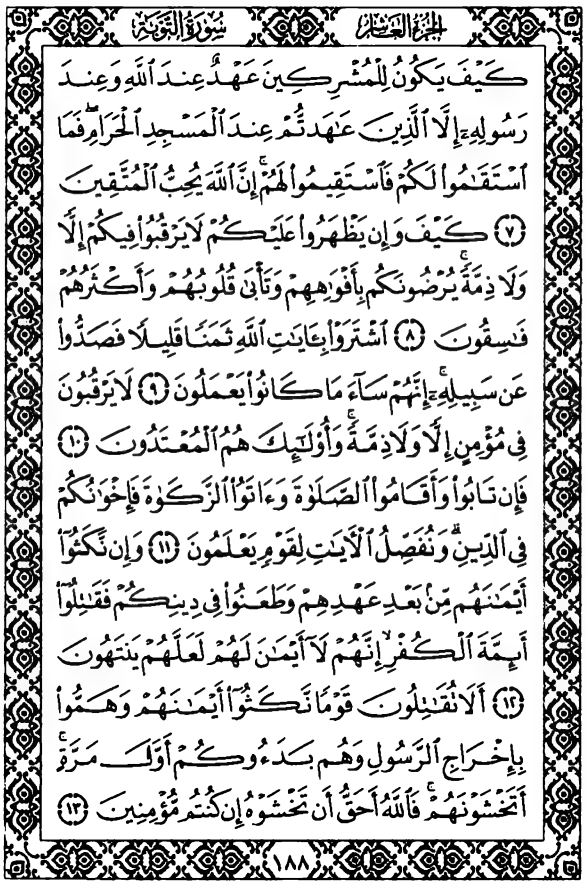 سُورَةُ التَّوْبَةِ الجُزْءُ العَاشِرُ
كَيْفَ يَكُونُ لِلْمُشْرِكِينَ عَهْدٌ عِندَ ٱللَّهِ وَعِندَ
رَسُولِهِۦٓ إِلَّا ٱلَّذِينَ عَٰهَدتُّمْ عِندَ ٱلْمَسْجِدِ ٱلْحَرَامِۖ فَمَا
ٱسْتَقَٰمُوا۟ لَكُمْ فَٱسْتَقِيمُوا۟ لَهُمْۚ إِنَّ ٱللَّهَ يُحِبُّ ٱلْمُتَّقِينَ
﴿٧﴾ كَيْفَ وَإِن يَظْهَرُوا۟ عَلَيْكُمْ لَا يَرْقُبُوا۟ فِيكُمْ إِلًّا
وَلَا ذِمَّةًۚ يُرْضُونَكُم بِأَفْوَٰهِهِمْ وَتَأْبَىٰ قُلُوبُهُمْ وَأَكْثَرُهُمْ
فَٰسِقُونَ ﴿٨﴾ ٱشْتَرَوْا۟ بِـَٔايَٰتِ ٱللَّهِ ثَمَنًا قَلِيلًا فَصَدُّوا۟
عَن سَبِيلِهِۦٓۚ إِنَّهُمْ سَآءَ مَا كَانُوا۟ يَعْمَلُونَ ﴿٩﴾ لَا يَرْقُبُونَ
فِى مُؤْمِنٍ إِلًّا وَلَا ذِمَّةًۚ وَأُو۟لَٰٓئِكَ هُمُ ٱلْمُعْتَدُونَ ﴿١٠﴾
فَإِن تَابُوا۟ وَأَقَامُوا۟ ٱلصَّلَوٰةَ وَءَاتَوُا۟ ٱلزَّكَوٰةَ فَإِخْوَٰنُكُمْ
فِى ٱلدِّينِۗ وَنُفَصِّلُ ٱلْـَٔايَٰتِ لِقَوْمٍ يَعْلَمُونَ ﴿١١﴾ وَإِن نَّكَثُوٓا۟
أَيْمَٰنَهُم مِّنۢ بَعْدِ عَهْدِهِمْ وَطَعَنُوا۟ فِى دِينِكُمْ فَقَٰتِلُوٓا۟
أَئِمَّةَ ٱلْكُفْرِۙ إِنَّهُمْ لَآ أَيْمَٰنَ لَهُمْ لَعَلَّهُمْ يَنتَهُونَ
﴿١٢﴾ أَلَا تُقَٰتِلُونَ قَوْمًا نَّكَثُوٓا۟ أَيْمَٰنَهُمْ وَهَمُّوا۟
بِإِخْرَاجِ ٱلرَّسُولِ وَهُم بَدَءُوكُمْ أَوَّلَ مَرَّةٍۚ
أَتَخْشَوْنَهُمْۚ فَٱللَّهُ أَحَقُّ أَن تَخْشَوْهُ إِن كُنتُم مُّؤْمِنِينَ ﴿١٣﴾
١٨٨